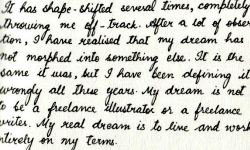 It has shape-shifted several times, completely
throwing me off-track. After a lot of obser
tion, I have realised that my dream has
not morphed into something else. It is the
same it was, but I have been defining it
wrongly all these years. My dream is not
to be a freelance illustrator or a freelance
writer. My real dream is to live and work
entirely on my terms.